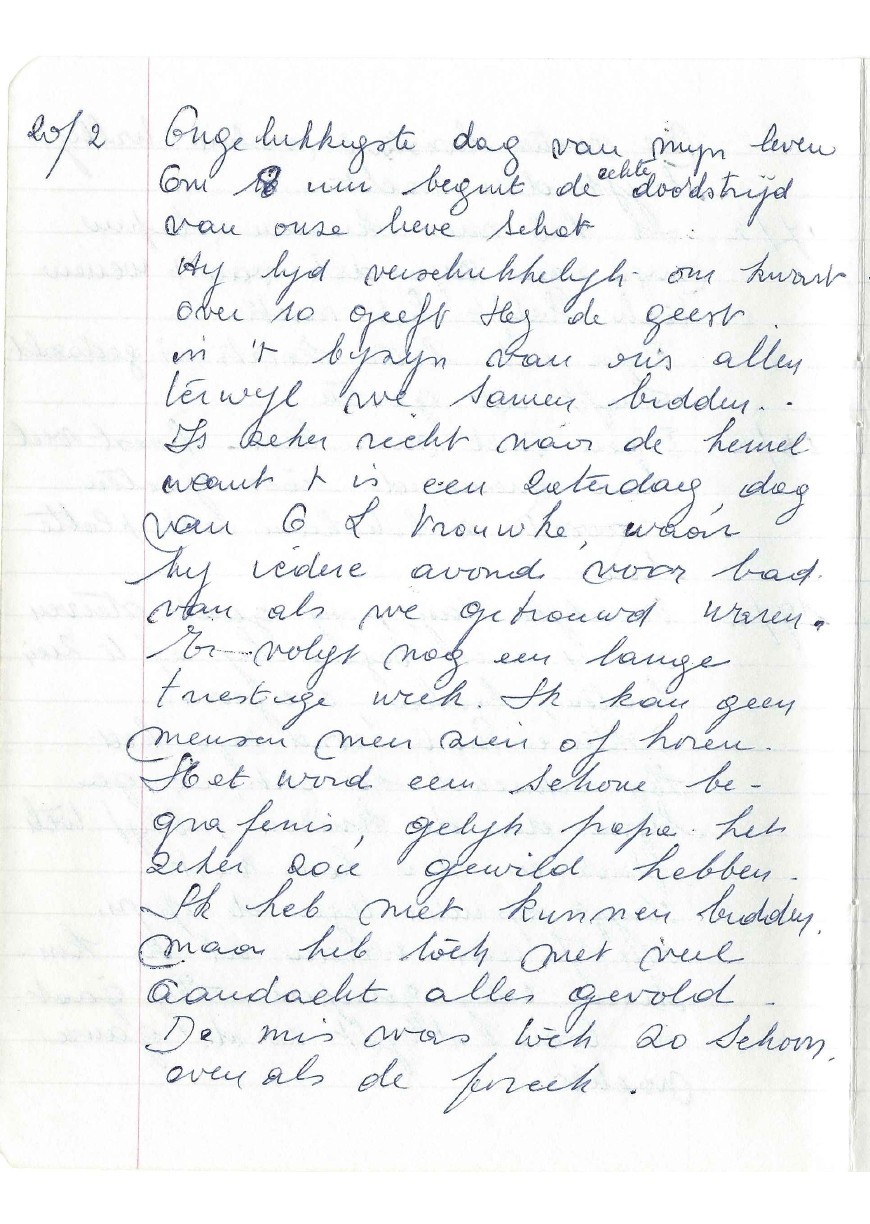 20/2 Ongelukkigste dag van mijn leven
Om 8 uur begint de echte doodstrijd
van onze lieve schat
Hy lyd verschukkelyk om kwart
over 10 geeft Hij de geest
in 't byzyn van ons allen
terwyl we samen bidden..
Is zeker recht naar de hemel
want t is een zaterdag, dag
van O L Vrouwke, waar
hy iedere avond voor bad
van als we getrouwd waren.
Er volgt nog een lange
triestige week Ik kan geen
mensen meer zien of horen.
Het word een schone be-
grafenis, gelyk papa het
zeker zou gewild hebben.
Ik heb niet kunnen bidden,
maar heb toch met veel
aandacht alles gevold.
De mis was toch zo schoon,
evenals de preek.